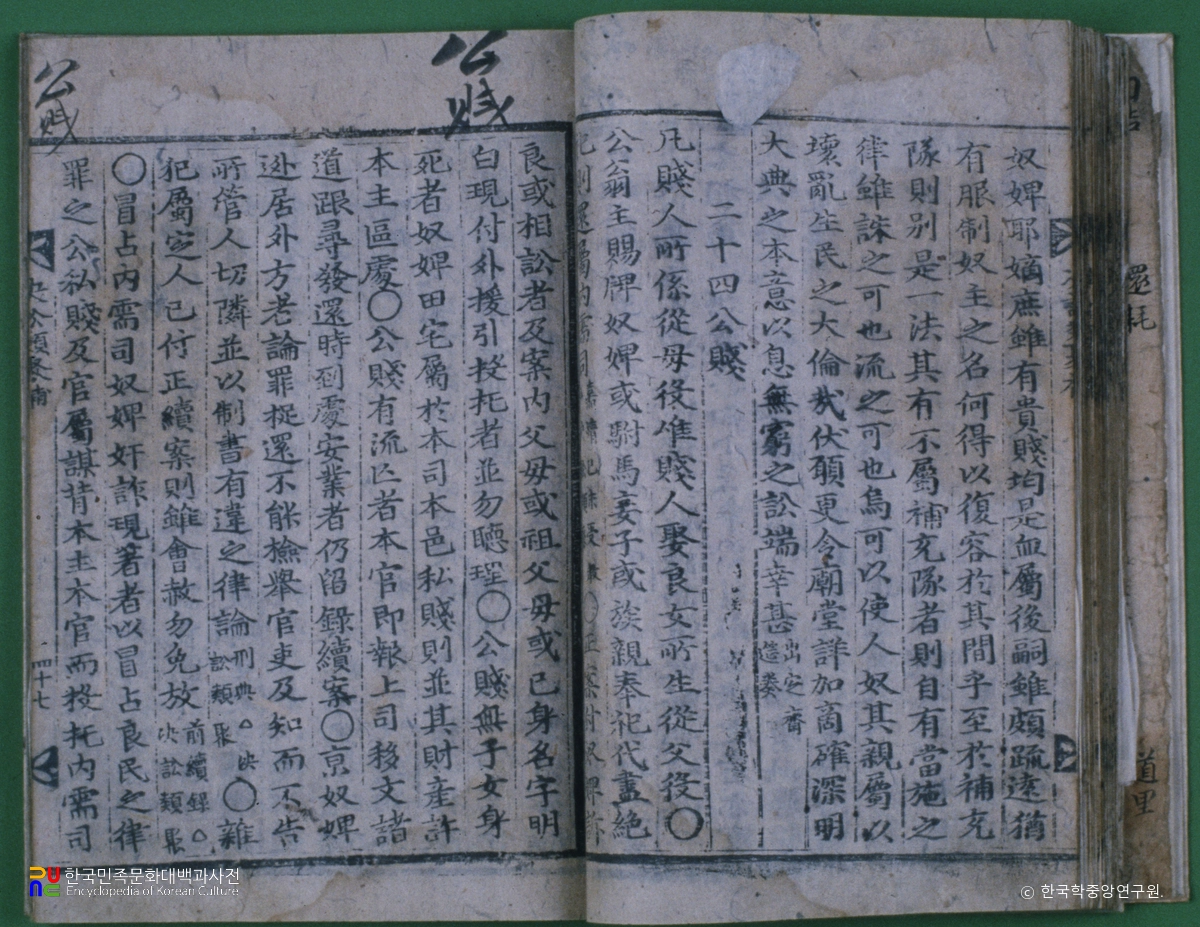 奴婢耶嫡庶雖有貴賤均是血屬後嗣雖頗踈遠猶
有服制奴主之名何得以復容於其間乎至於補充
隊則別是一法其有不屬補充隊者則自有當施之
律雖誅之可也流之可也烏可以使人奴其親屬以
壞亂生民之大倫哉伏願更令廟堂詳加商確深明
大典之本意以息無窮之訟端幸甚出定齋造奏
二十四公賤
凡賤人所係從母役唯賤人娶良女所生從父役〇
公翁主賜牌奴婢或駙馬妾子或族親奉祀代盡絶
則還屬內需司
良或相訟者及案內父母或祖父母或己身名字明
白現付外援引投托者並勿聽理〇公賤無子女身
死者奴婢田宅屬於本司本邑私賤則並其財産許
本主區處〇公賤有流亡者本官即報上司移文諸
道跟尋發還時到處安業者仍留錄續案〇京奴婢
逃居外方者論罪捉還不能檢擧官吏及知而不告
所管人切隣並以制書有違之律論刑典。決訟類聚〇雜
犯屬定人已付正續案則雖會赦勿免放前續錄。決訟類聚
〇冒占內需司奴婢奸詐現著者以冒占良民之律
罪之公私賤及官屬謀背本主本官而投托內需司
公賤
公賤
四十七
還耗
道里
한국민족문화대백과사전
Encyclopedia of Korean Culture
© 한국학중앙연구원.